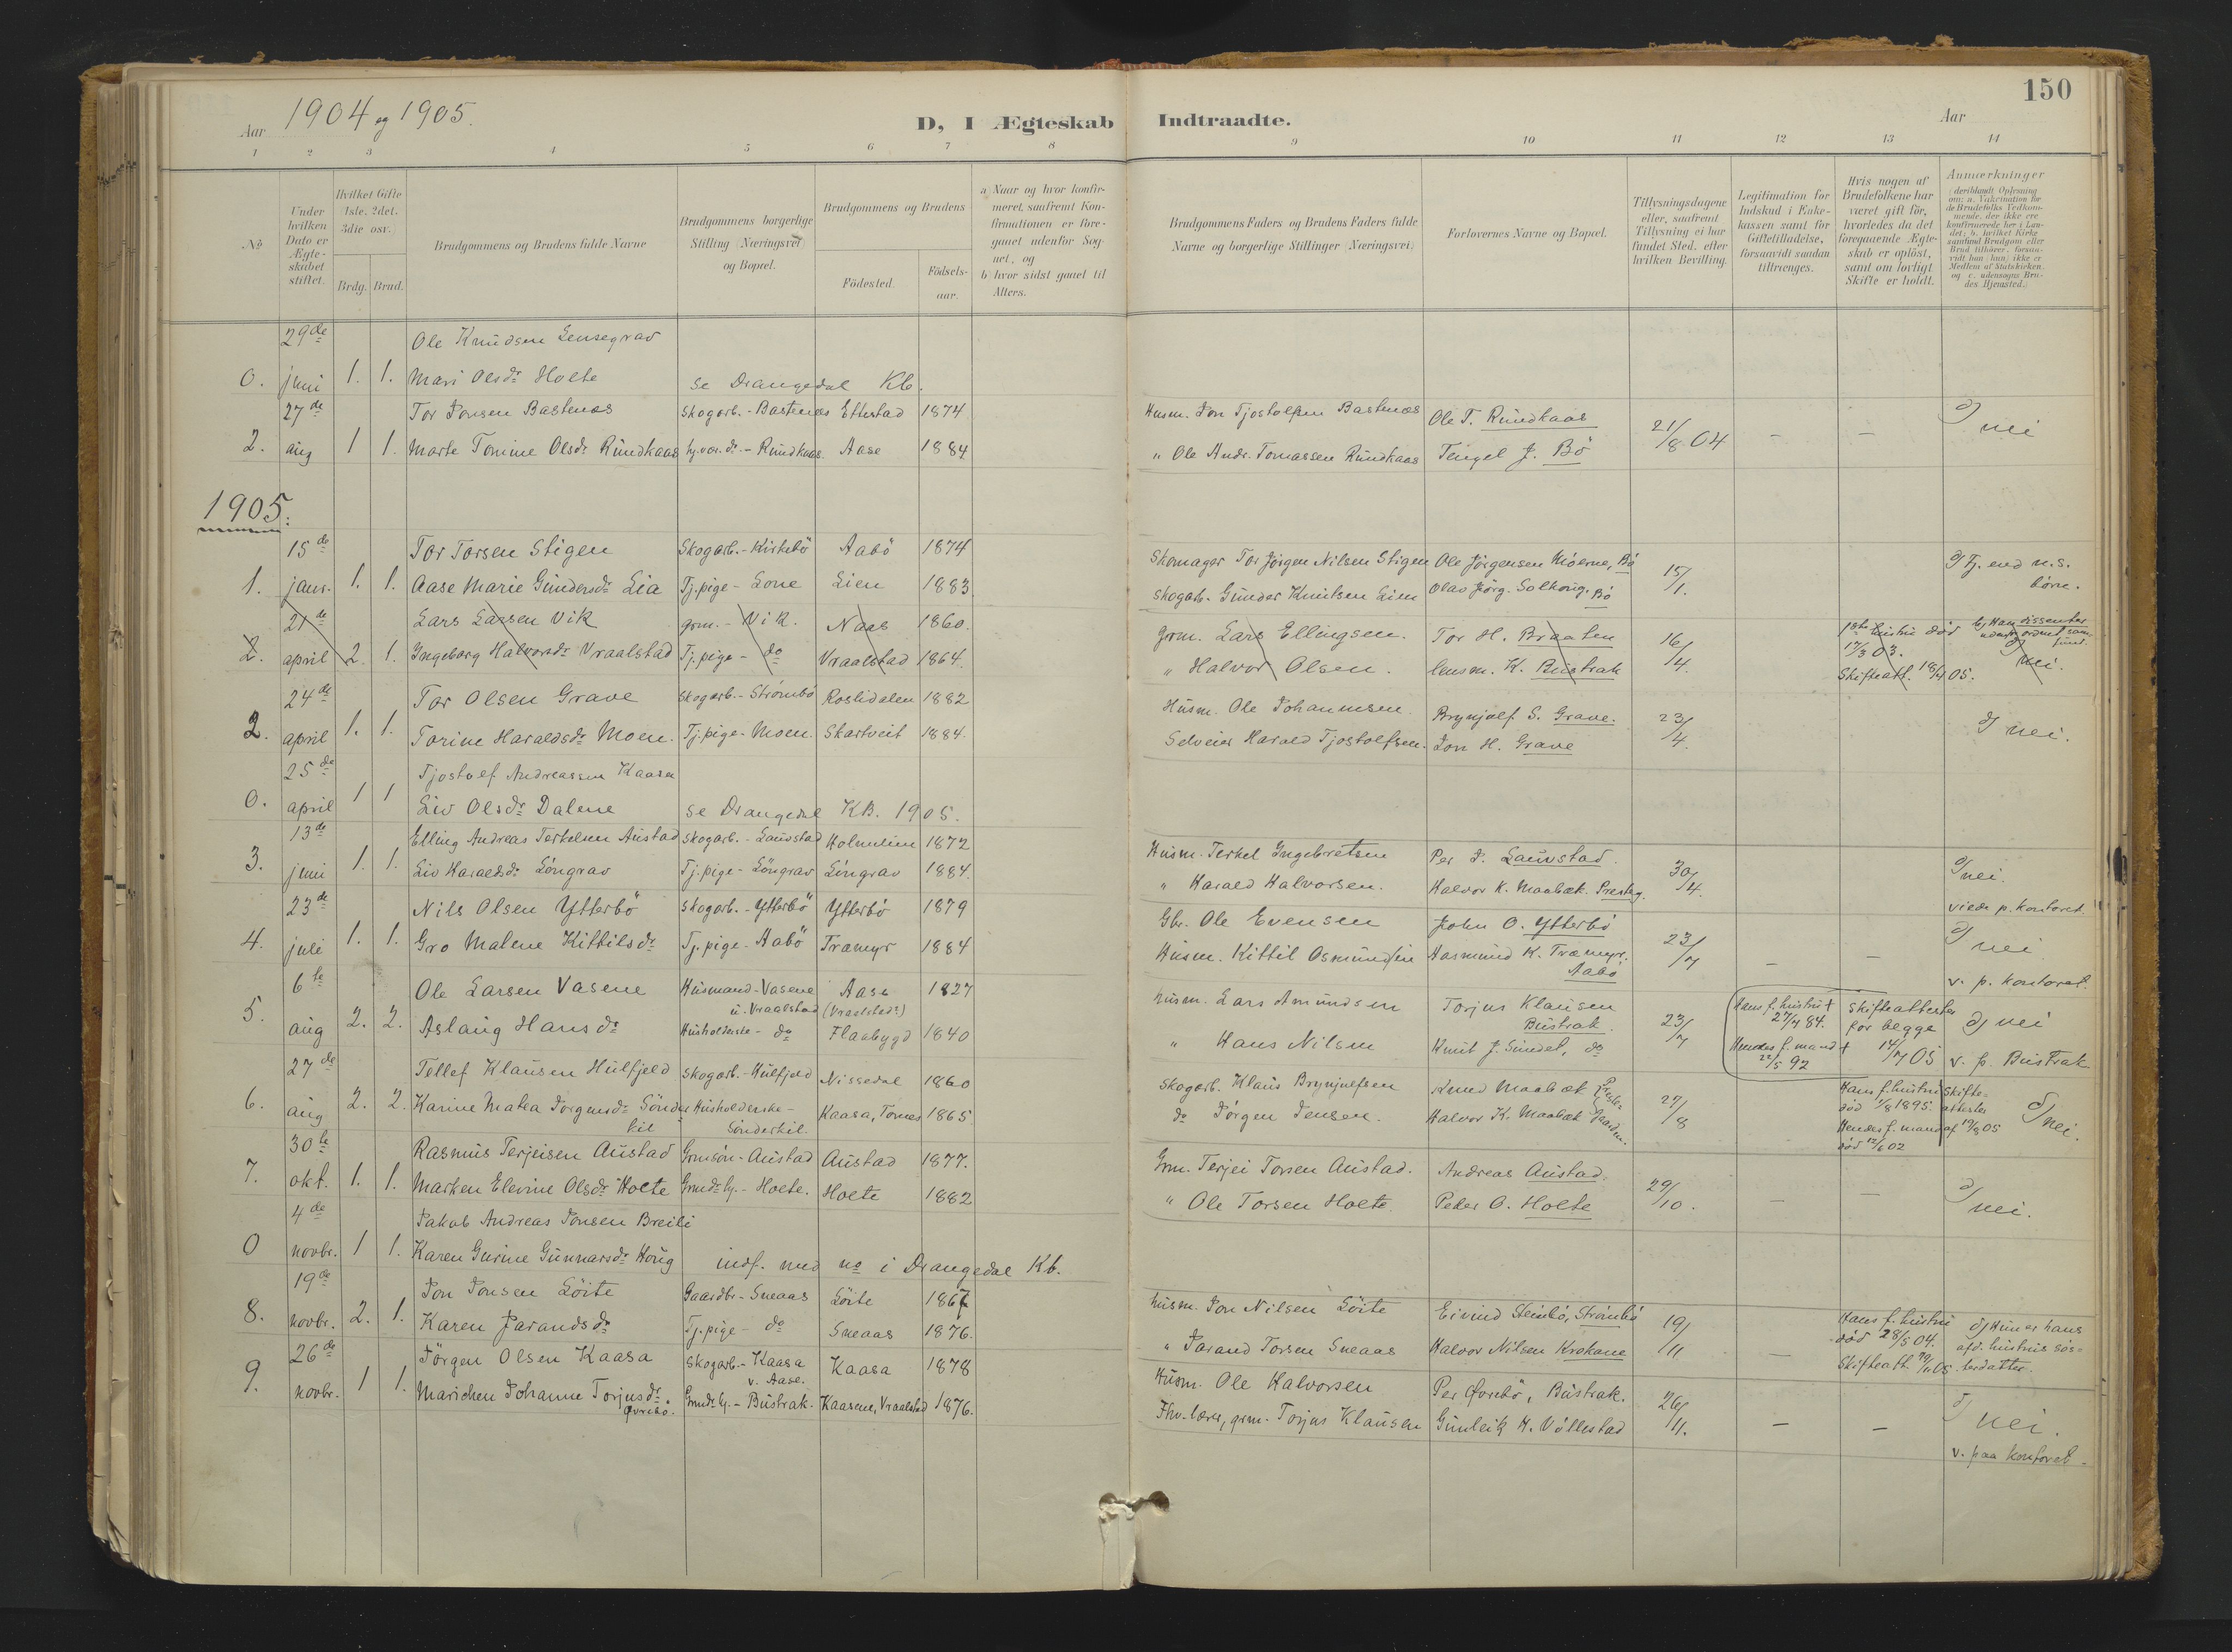 150
Aar 1904 og 1905.
D, I Ægteskab Indtraadte.
Aar
1 2 3 4 5 6 7 8 9 10 11 12 13 14
No
Under hvilken Dato er Ægteskabet stiftet.
Hvilket Gifte 1ste, 2det, 3die osv.
Brdg. Brud.
Brudgommens og Brudens fulde Navne
Brudgommens borgerlige Stilling (Næringsvei) og Bopæl.
Brudgommens og Brudens
Födested.
Födsels-aar.
a) Naar og hvor konfirmeret, saafremt Konfirmationen er foregaaet udenfor Sognet, og
b) hvor sidst gaaet til Alters.
Brudgommens Faders og Brudens Faders fulde Navne og borgerlige Stillinger (Næringsvei)
Forlovernes Navne og Bopæl.
Tillysningsdagene eller, saafremt Tillysning ei har fundet Sted, efter hvilken Bevilling.
Legitimation for Indskud i Enkekassen samt for Giftetilladelse, forsaavidt saadan tiltrænges.
Hvis nogen af Brudefolkene har været gift för, hvorledes da det foregaaende Ægteskab er oplöst, samt om lovligt Skifte er holdt.
Anmærkninger
(deriblandt Oplysning om: a. Vakcination for de Brudefolks Vedkommende, der ikke ere konfirmerede her i Landet; b. hvilket Kirkesamfund Brudgom eller Brud tilhörer, forsaavidt han (hun) ikke er Medlem af Statskirken, og c. udensogns Brudes Hjemsted.)
29de Ole Knudsen Lensegrav
0. juni 1. 1. Mari Olsdr Holte se Drangedal Kb.
27de Tor Jonsen Bastenæs Skogarb. - Bastenæs Ettestad 1874 Husm. Jon Tjostolfsen Bastenæs Ole T. Rundkaas
2. aug 1 1. Marte Tomine Olsdr Rundkaas hj.vær. dr - Rundkaas. Aase 1884 " Ole Andr. Tomassen Rundkaas Tengel J. Bö 21/8. 04 - - d) nei
1905:
15de Tor Torsen Stigen Skogarb. - Kirkebö Aabö 1874 Skomager Tor Jörgen Nilsen Stigen Ole Jörgensen Moerne, Bö
1. janr. 1. 1. Aase Marie Gundersdr Lia Tj.pige - Lone Lien 1883 Skogarb. Gunder Knutsen Lien Olav Jörg. Solhong. Bö 15/1. d) Tj. end n.s. börn.
21de Lars Larsen Vik grm. - Vik. Naas 1860. Grm. Lars Ellingsen. Tor H. Braaten 1ste hustru död b) Han dissenter
2. april 2. 1. Ingeborg Halvorsdr Vraalstad Tj.pige - do Vraalstad 1864. " Halvor Olsen. Lensm. K. Bustrak 16/4. 17/3 03. Skifteatt. 18/4 05. d) nei.
24de Tor Olsen Grave Skogarb. - Strömbö Roslidalen 1882 Husm. Ole Johannsen. Brynjolf S. Grave.
2. april 1. 1. Torine Haraldsdr Moen. Tj.pige - Moen. Skartveit 1884. Selveier Harald Tjostolfsen. Jon H. Grave 23/4. d) nei.
25de Tjostolf Andreassen Kaasa
0. april 1 1 Liv Olsdr Dalene se Drangedal KB. 1905.
13de Elling Andreas Terkelsen Austad Skogarb. - Lauvstad Holmlien 1872 Husm. Terkel Ingebretsen Per J. Lauvstad.
3. juni 1. 1. Liv Haraldsdr Löngrav Tj.pige - Löngrav Löngrav 1884. " Harald Halvorsen. Halvor K. Maabæk. Presteg. 30/4. d) nei.
viede p. kontoret.
23de Nils Olsen Ytterbö Skogarb. - Ytterbö Ytterbö 1879 Gbr. Ole Evensen John O. Ytterbö
4. juli 1. 1. Gro Malene Kittilsdr Tj.pige - Aabö Tramyr 1884 Husm. Kittil Osmundsen Aasmund K. Tramyr. Aabö 23/7 - - d) nei
v. p. kontoret.
6te Ole Larsen Vasene Husmand - Vasene u. Vraalstad Aase (Vraalstad?) 1827 Husm. Lars Amundsen Torjus Klausen Bustrak. Hans f. hustru † 27/4 84. Skifteattester for begge
5. aug 2. 2. Aslaug Hansdr Husholderske - do Flaabygd 1840 " Hans Nilsen Knut J. Sundet, do 23/7 Hendes f. mand † 22/5 92 14/7 05 d) nei
v. p. Bustrak
27de Tellef Klausen Hulfjeld Skogarb. - Hulfjeld Nissedal 1860 Skogarb. Klaus Brynjulfsen Knud Maabæk Hans f. hustru död 1/8 1895. Skifteattester
6. aug 2. 2. Karine Matea Jorgensdr Sönderkil Husholderske - Sönderkil. Kaasa, Tornes 1865. do Jörgen Jensen. Halvor K. Maabæk Prestegaarden. 27/8 Hendes f. mand död 12/6 02 af 19/8 05 d) nei.
30te Rasmus Terjeisen Austad Grmsön - Austad Austad 1877. Grm. Terjei Torsen Austad. Andreas Austad.
7. okt. 1. 1. Marken Elevine Olsdr Holte Grmdr hj. - Holte. Holte 1882 " Ole Torsen Holte. Peder O. Holte 29/10. - - d) nei.
4de Jakob Andreas Jonsen Breili
0 novbr. 1 1. Karen Gurine Gunnarsdr Houg indf. med no i Drangedal Kb.
19de Jon Jonsen Löite Gaardbr - Sneaas Löite 1867 Husm. Jon Nilsen Löite Eivind Stenbö, Strömbö Hans f. hustru död 28/5 04.
8. novbr. 2. 1. Karen Jarandsdr Tj.pige - do Sneaas 1876. " Jarand Torsen Sneaas Halvor Nilsen Krokane 19/11 - Skifteatt. d) Hun er hans afd. hustrus sösterdatter.
26de Jörgen Olsen Kaasa Skogarb. - Kaasa v. Aase. Kaasa 1878 Husm. Ole Halvorsen Per Övrebö, Bustrak.
9. novbr. 1 1. Marichen Johanne Torjusdr Övrebö. Grmdr hj. - Bustrak. Kaasene, Vraalstad 1876. Fhv. lærer, grm. Torjus Klausen Gunleik H. Völlestad 26/11. - - d) nei.
v. paa kontoret.